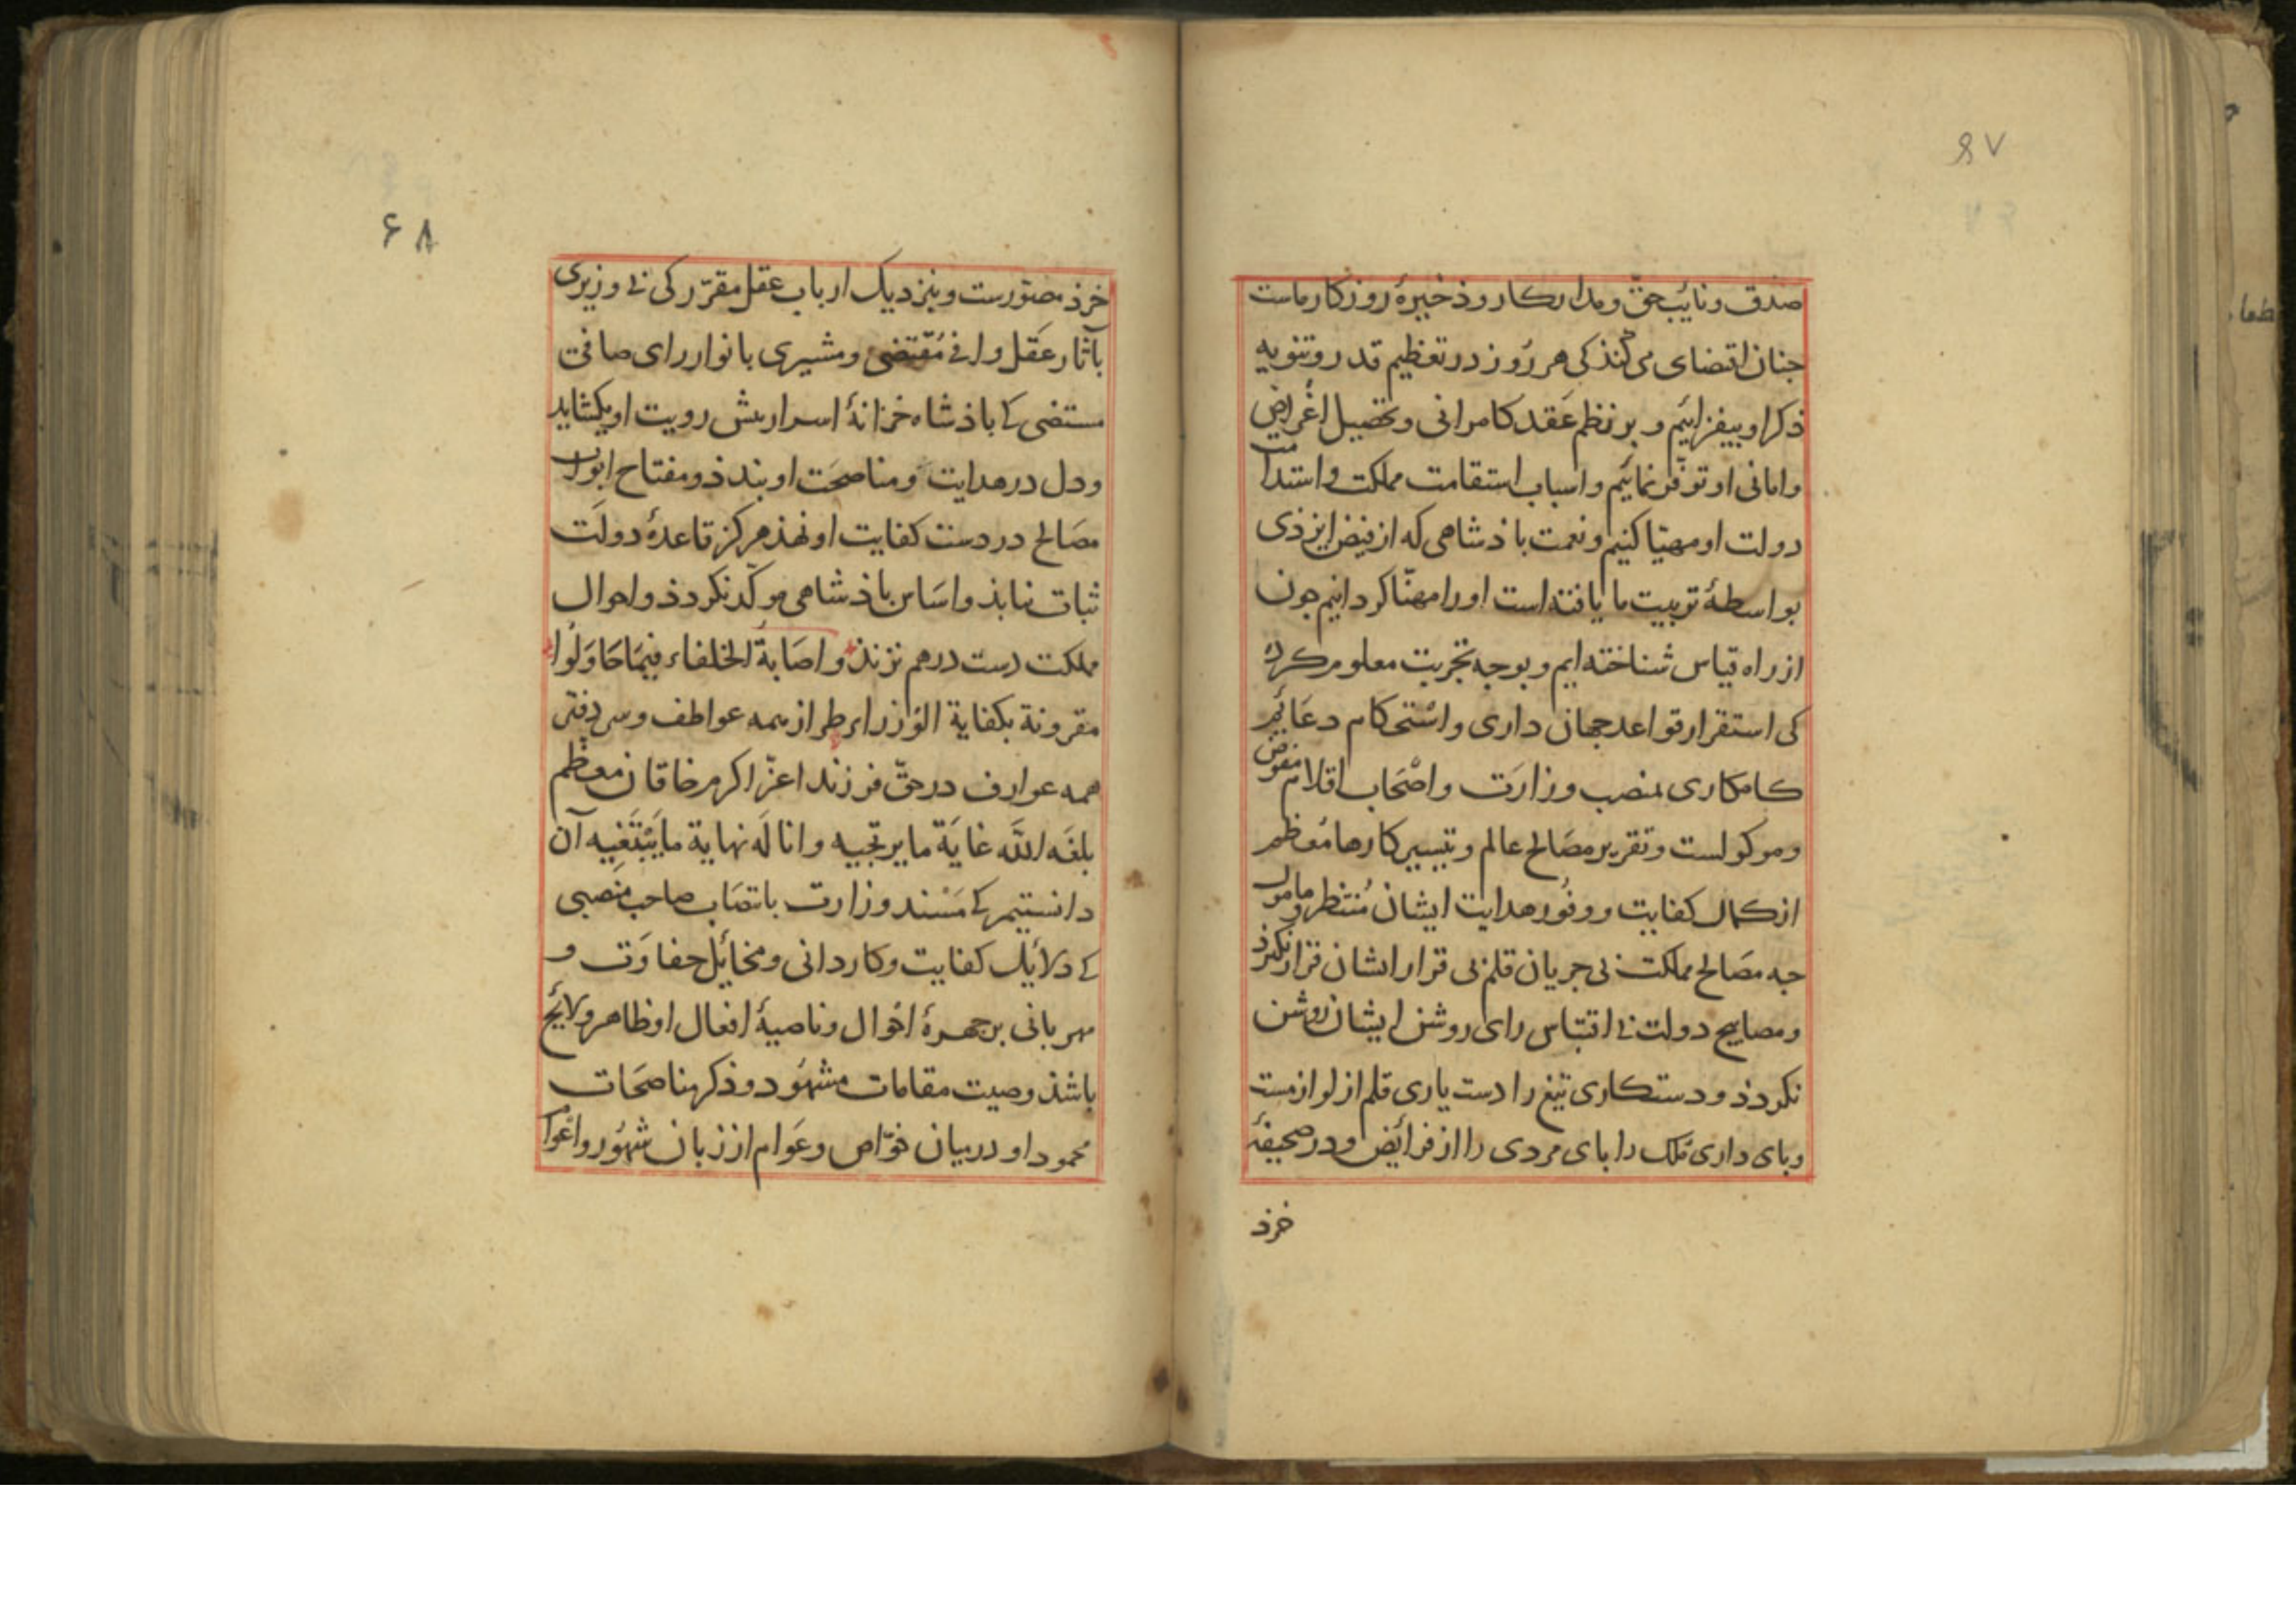 ۶۷
صدق و نایب حق و مدار کار و ذخیرهٔ روزکار ماست
جنان اقتضای می کنذ کی هر روز در تعظیم قدر و تنویه
ذکر او بیفزاییم و بر نظم عقد کامرانی و تحصیل اغراض
و امانی او توفر نماییم و اسباب استقامت مملکت و استدامت
دولت او مهیّا کنیم و نعمت باذشاهی که از فیض ایزذی
بواسطهٔ تربیت ما یافته است او را مهنّا کردانیم جون
از راه قیاس شناخته ایم و بوجه تجربت معلوم کرده
کی استقرار قواعد جهان داری و استحکام دعائم
کامکاری بمنصب وزارت و اصحاب اقلام مفوض
و موکولست و تقریر مصالح عالم و تیسیر کارها معظم
از کمال کفایت و وفور هدایت ایشان منتظر و مامول
جه مصالح مملکت بی جریان قلم بی قرار ایشان قرار نکیرذ
و مصابیح دولت بی اقتباس رای روشن ایشان روشن
نکرذذ و دستکاری تیغ را دست یاری قلم از لوازمست
و بای داری ملک را بای مردی را از فرائض و در صحیفهٔ
خرذ
۶۸
خرذ مصوّرست و بنزدیک ارباب عقل مقرّر کی بی وزیری
بآثار عقل وافی مقتضی و مشیری بانوار رای صافی
مستضی کی باذشاه خزانهٔ اسرار بیش رویت او بکشاید
و دل در هدایت و مناصحت او بندذ و مفتاح ابواب
مصالح در دست کفایت او نهذ هرکز قاعدهٔ دولت
ثبات نیابذ و اساس باذشاهی موکّد نکرذذ و احوال
مملکت دست درهم نزنذ و اصابة الخلفاء فیما حاولوا
مقرونة بکفایة الوزراء طراز همه عواطف و سر دفتر
همه عوارف در حقّ فرزند اعزّ اکرم خاقان معظم
بلغه اللّه غایة ما یرتجیه و اناله نهایة ما یبتغیه آن
دانستیم کی مسند وزارت بانتصاب صاحب منصبی
کی دلایل کفایت و کاردانی و مخائل حفاوت و
مهربانی بر جهرهٔ احوال و ناصیهٔ افعال او ظاهر و لایح
باشذ و صیت مقامات مشهود و ذکر مناصحات
محمود او در میان خوّاص و عوام از زبان شهور و اعوام